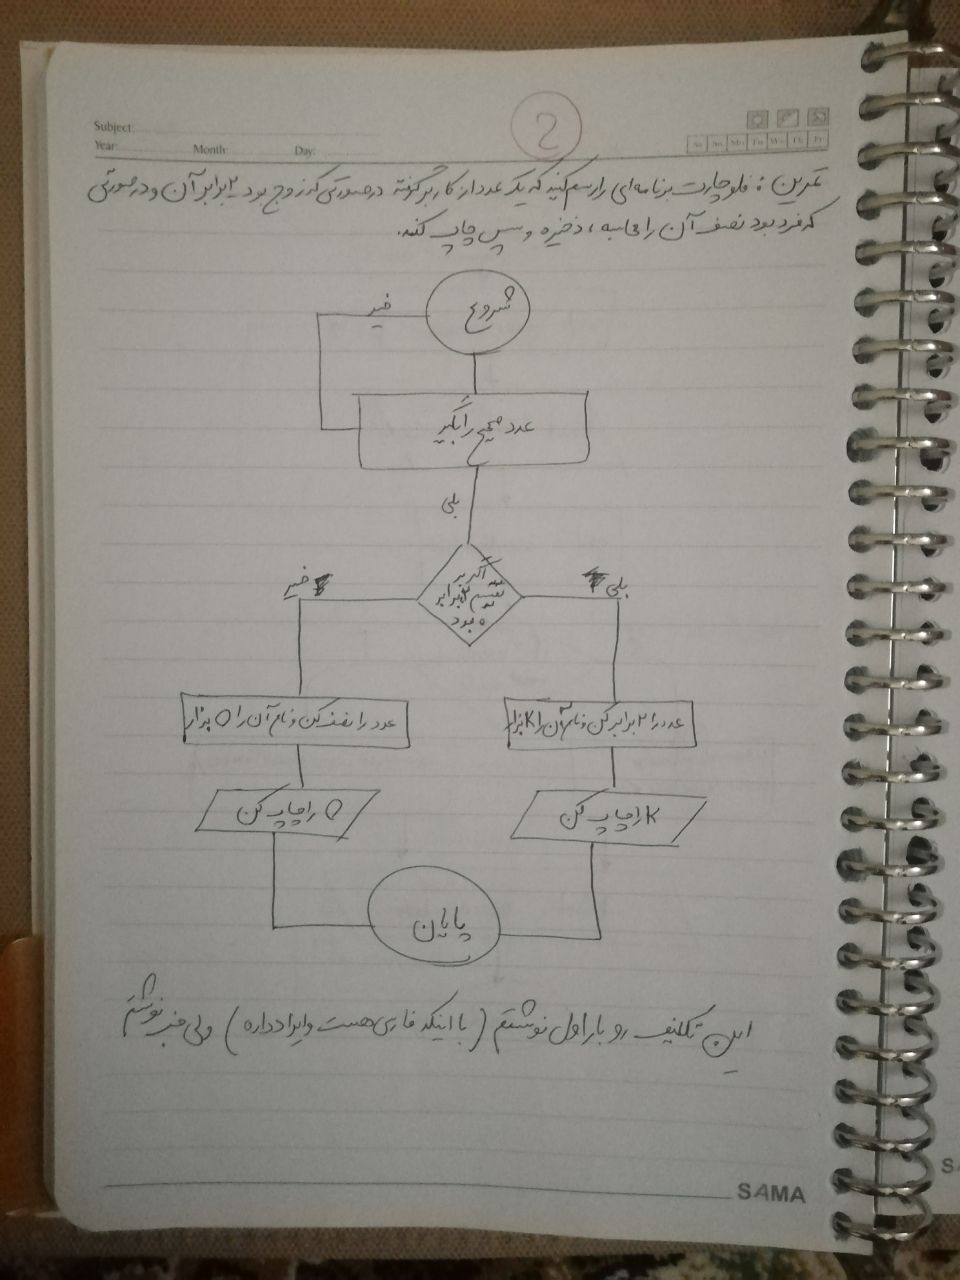 Subject:
Year: Month: Day:
2
Sa Su Mo Tu We Th Fr
تمرین : فلوچارت برنامه‌ای را رسم کنید که یک عدد از کاربر گرفته در صورتی که زوج بود ۲ برابر آن و در صورتی
که فرد بود نصف آن را محاسبه ، ذخیره و سپس چاپ کند.
شروع
خیر
عدد صحیح را بگیر
بلی
اگر بر
تقسیم ۲ برابر
۰ بود
خیر
بلی
عدد را نصف کن و نام آن را O بزار
عدد را ۲ برابر کن و نام آن را K بزار
O را چاپ کن
K را چاپ کن
پایان
این تکلیف رو بار اول نوشتم (با اینکه فارسی هست و ایراد داره) ولی نوشتم
SAMA